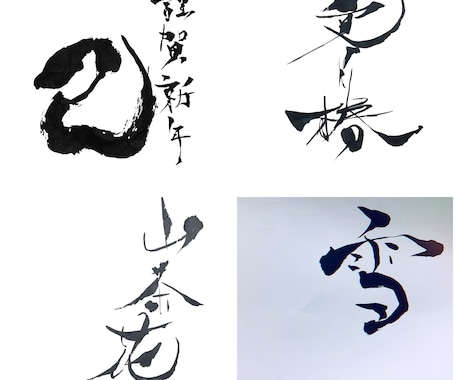 謹賀新年
巳
椿
山茶花
雪